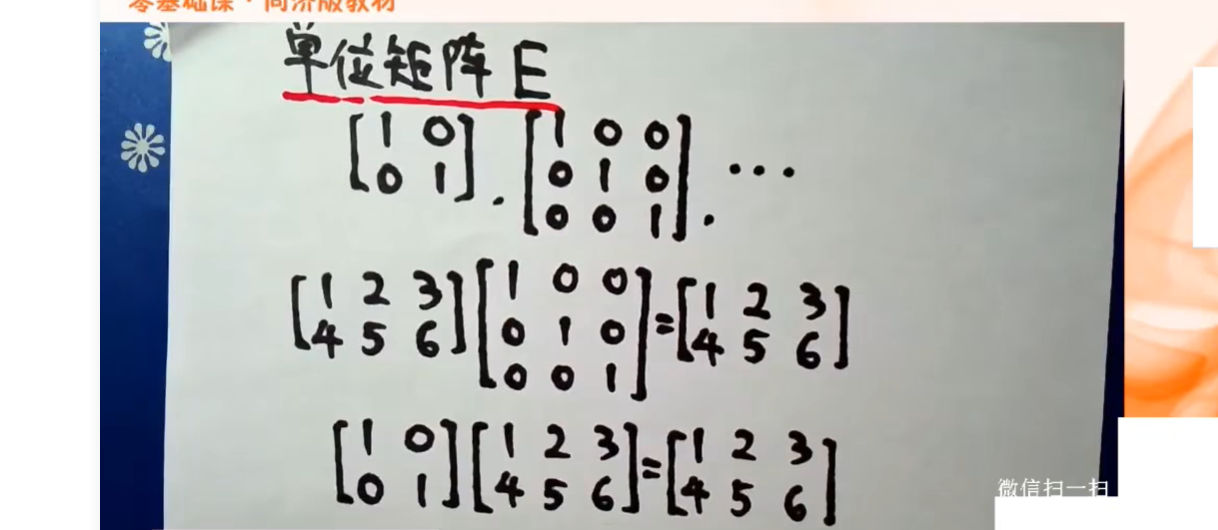 零基础课·同济版教材
单位矩阵 E
[1 0
0 1] . [1 0 0
0 1 0
0 0 1] . ...
[1 2 3
4 5 6] [1 0 0
0 1 0
0 0 1] = [1 2 3
4 5 6]
[1 0
0 1] [1 2 3
4 5 6] = [1 2 3
4 5 6]
微信扫一扫